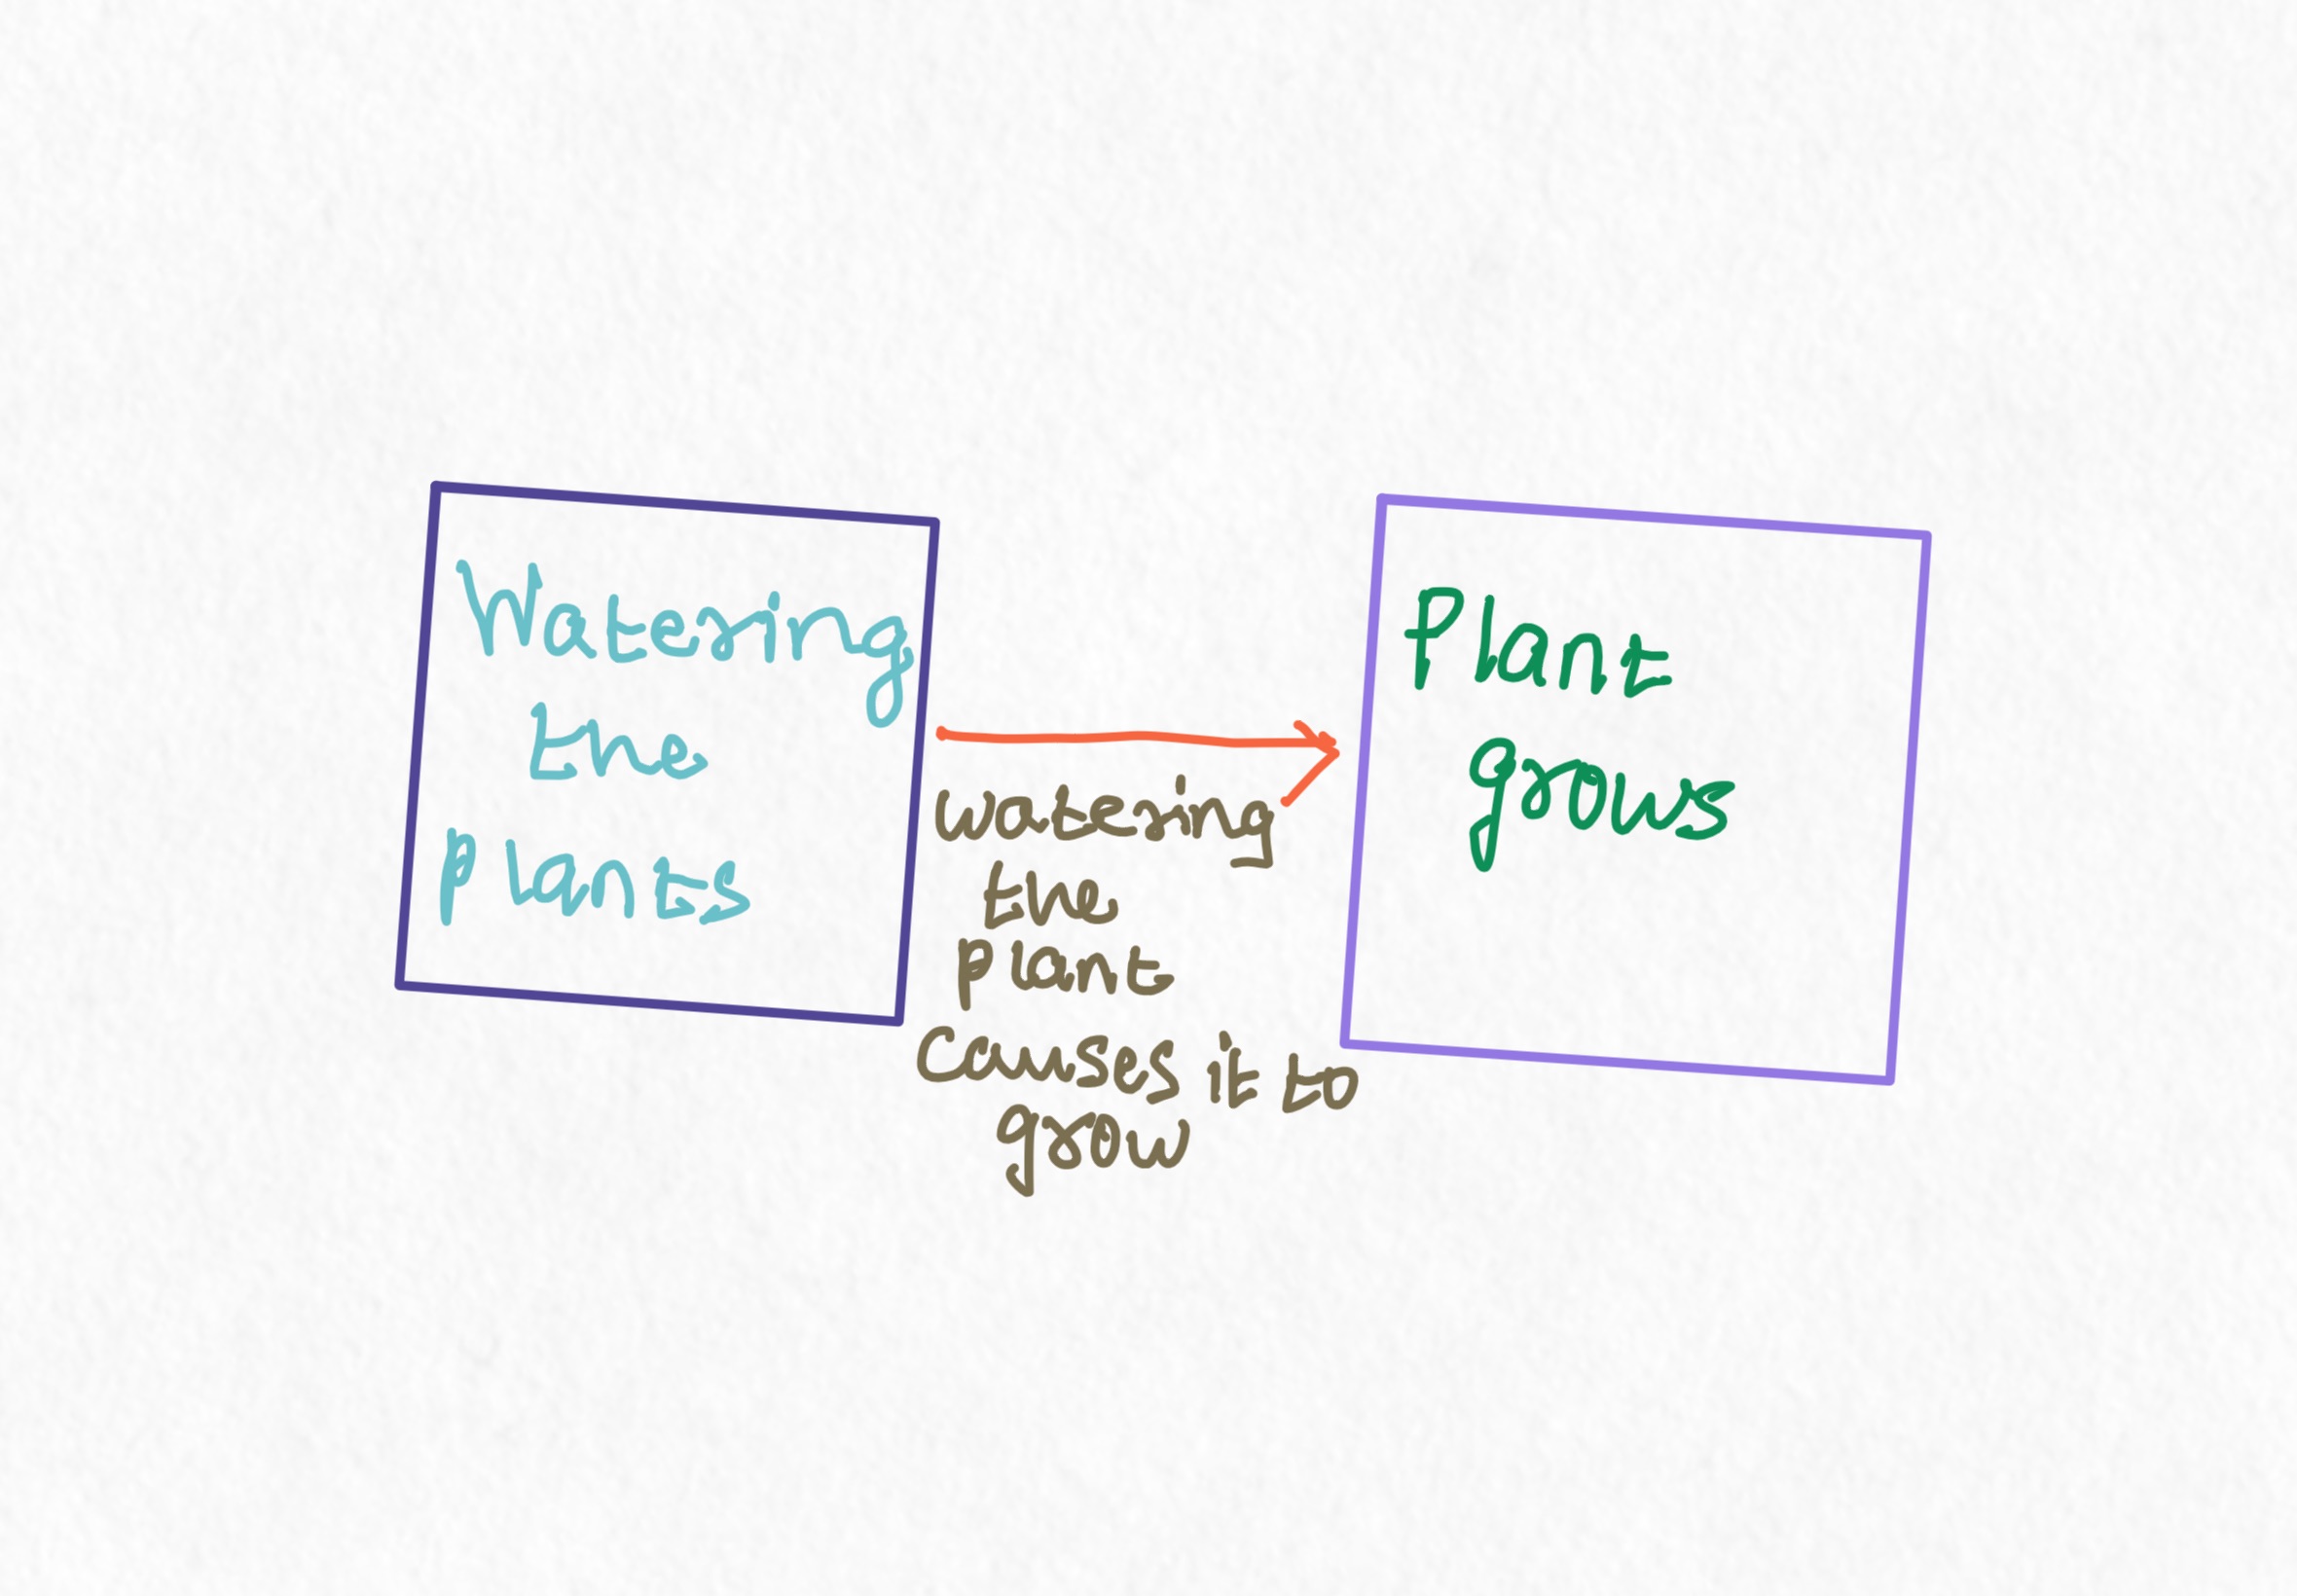 Watering
the
plants
watering
the
plant
causes it to
grow
Plant
grows